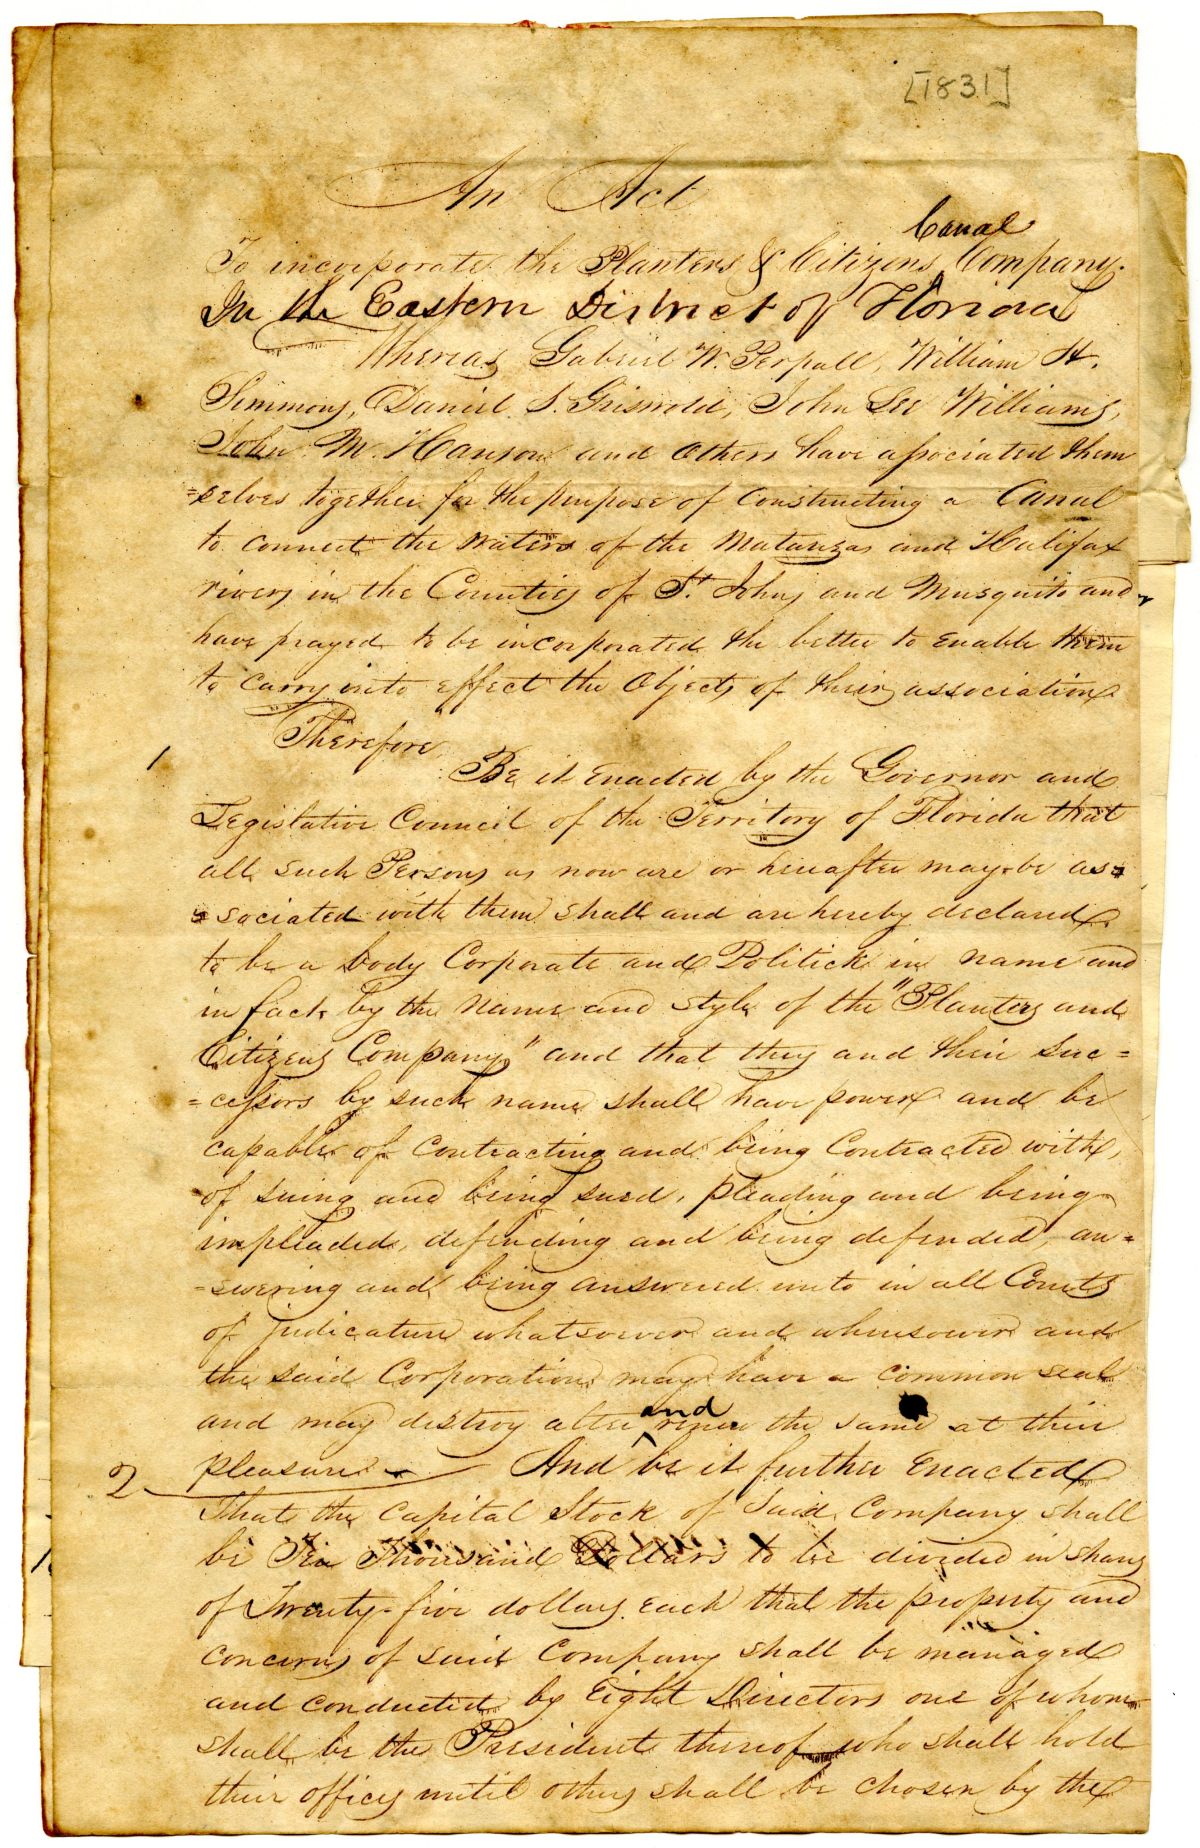 [1831]
An Act
Canal
To incorporate the Planters & Citizens Company.
In the Eastern District of Florida
Whereas Gabriel W. Perpall, William H.
Simmons, Daniel S. Griswold, John Lee Williams,
John M. Hanson and others have associated them
=selves together for the purpose of constructing a Canal
to connect the waters of the Matanzas and Halifax
rivers in the Counties of St. Johns and Musquito and
have prayed to be incorporated the better to enable them
to carry into effect the Objects of their association
Therefore
1 Be it enacted by the Governor and
Legislative Council of the Territory of Florida that
all such Persons as now are or hereafter may be as=
=sociated with them shall and are hereby declared
to be a body Corporate and Politick in name and
in fact by the name and style of the "Planters and
Citizens Company" and that they and their suc=
=cessors by such name shall have power and be
capable of contracting and being Contracted with,
of suing and being sued, pleading and being
impleaded, defending and being defended, an=
=swering and being answered unto in all Courts
of judicature whatsoever and wheresoever and
the said Corporation may have a common seal
and may destroy alter and renew the same at their
2 pleasure — And be it further Enacted
That the Capital Stock of said Company shall
be Ten Thousand Dollars to be divided in shares
of Twenty-five dollars each that the property and
concerns of said Company shall be managed
and conducted by Eight Directors one of whom
shall be the President thereof who shall hold
their offices until others shall be chosen by the